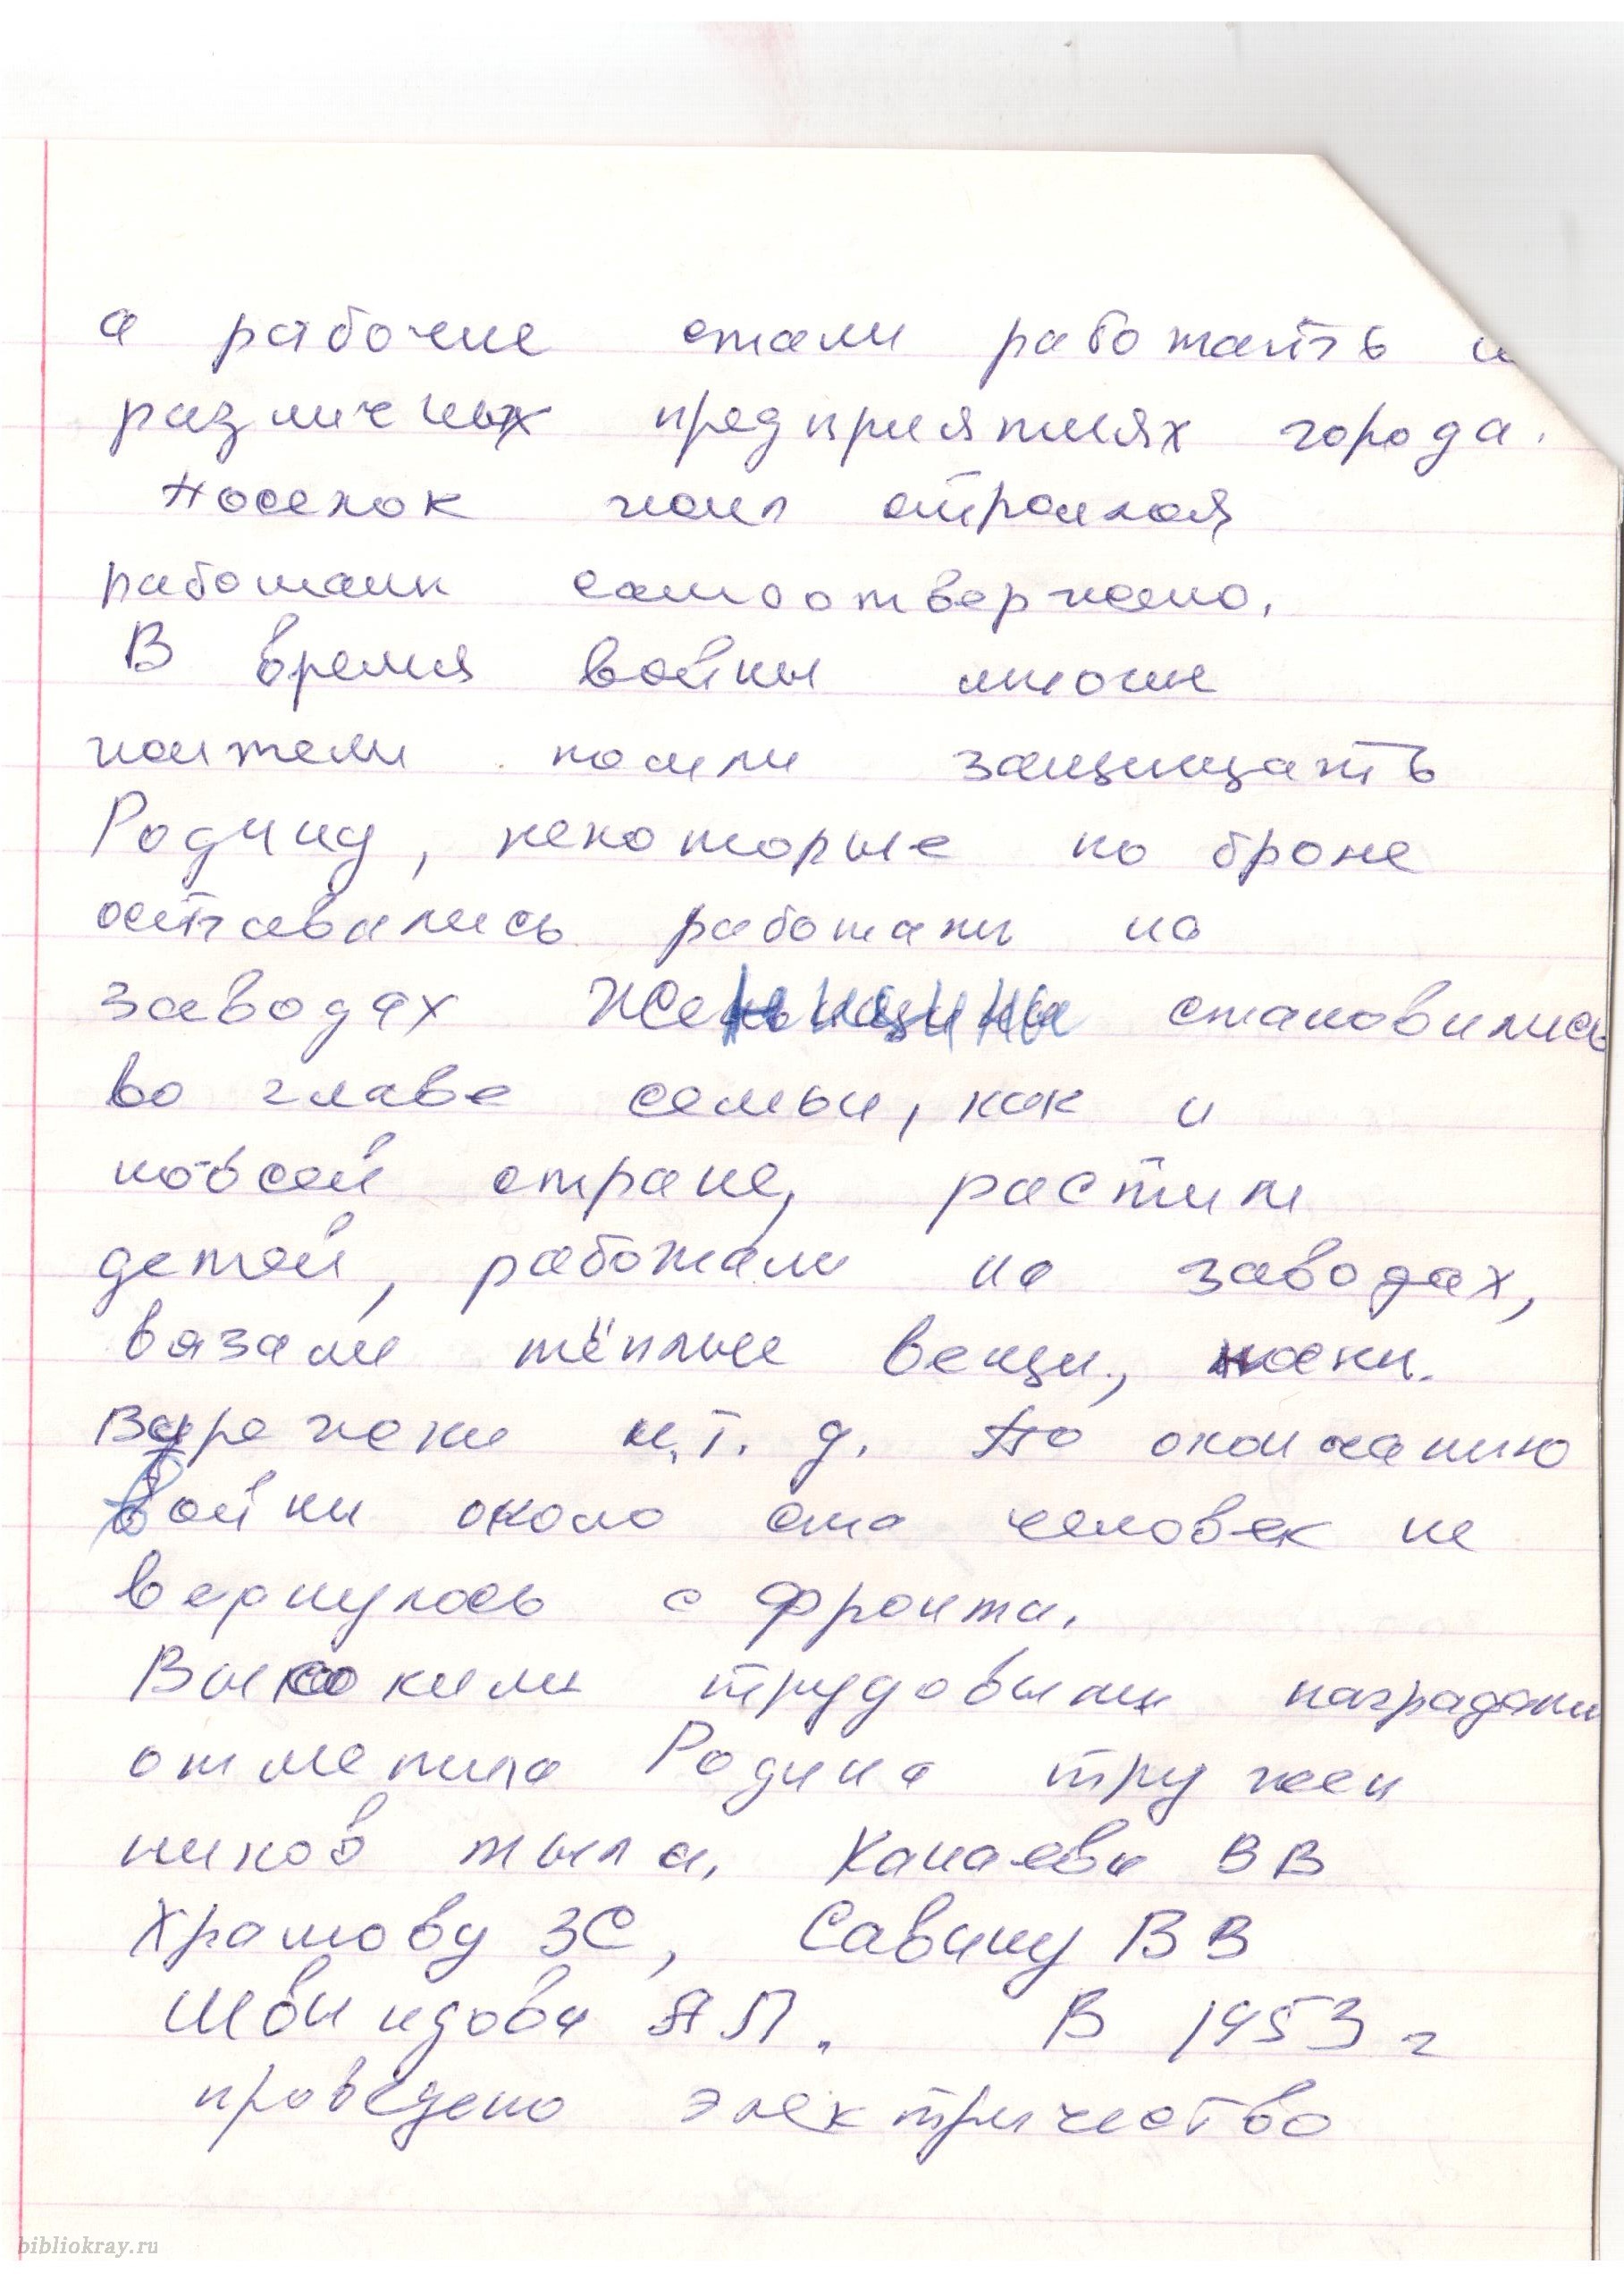 а рабочие стали работать н
различных предприятиях города.
Поселок жил строился
работали самоотвержено.
В время войны многие
жители пошли защищать
Родину, некоторые по броне
оставались работать на
заводах Женьщины становились
во главе семьи, как и
по всей стране, растили
детей, работали на заводах,
вязали тёплые вещи, носки.
варежки и.т. д. По окончанию
войны около ста человек не
вернулось с фронта.
Высокими трудовыми наградами
отметила Родина тружен
ников тыла. Канаева ВВ
Храмову ЗС, Савину ВВ
Швындова АП. В 1953 г
проведено электричество
bibliokray.ru